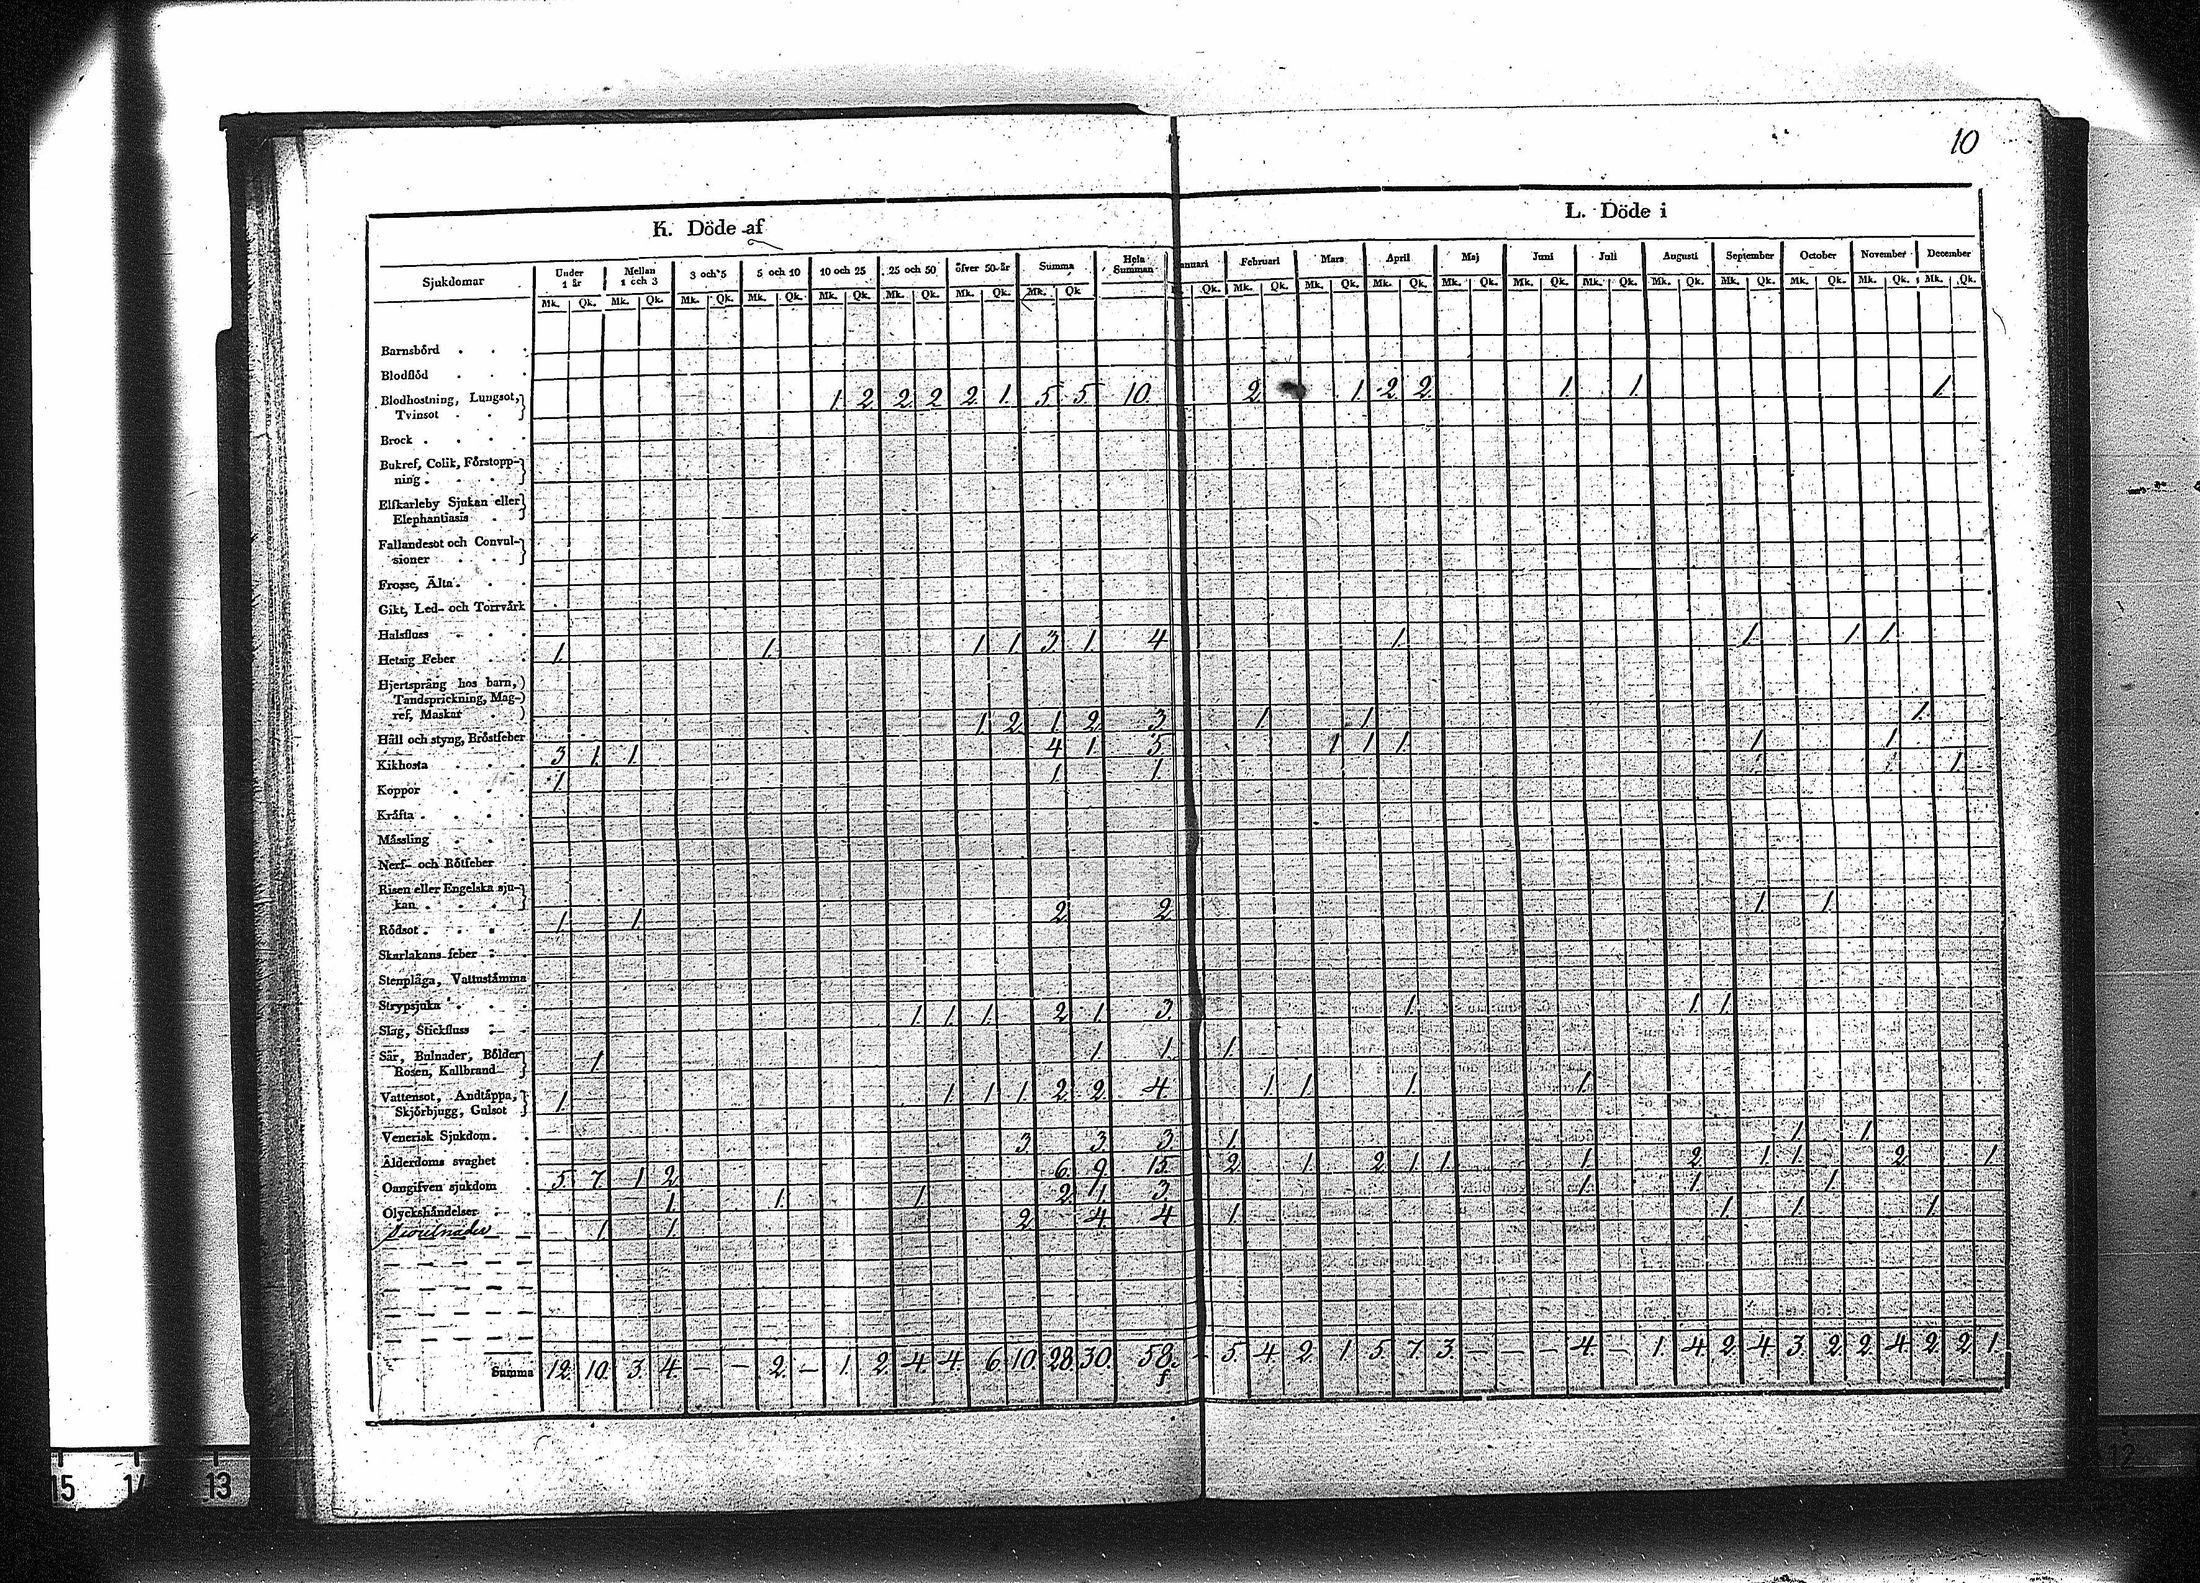 10
K. Döde af
L. Döde i
Sjukdomar Under 1 år Mellan 1 och 3 3 och 5 5 och 10 10 och 25 25 och 50 öfver 50 år Summa Hela Summan Januari Februari Mars April Maj Juni Juli Augusti September October November December
Mk. Qk. Mk. Qk. Mk. Qk. Mk. Qk. Mk. Qk. Mk. Qk. Mk. Qk. Mk. Qk. Qk. Mk. Qk. Mk. Qk. Mk. Qk. Mk. Qk. Mk. Qk. Mk. Qk. Mk. Qk. Mk. Qk. Mk. Qk. Mk. Qk. Mk. Qk.
Barnsbörd
Blodflöd
Blodhostning, Lungsot,
Tvinsot 1. 2. 2. 2. 2. 1. 5. 5. 10. 2. 1. 2. 2. 1. 1. 1.
Brock
Bukref, Colik, Förstopp-
ning
Elfkarleby Sjukan eller
Elephantiasis
Fallandesot och Convul-
sioner
Frosse, Älta
Gikt, Led- och Torrvärk
Halsfluss
Hetsig Feber 1. 1. 1. 1. 3. 1. 4. 1. 1. 1. 1.
Hjertsprång hos barn,
Tandsprickning, Mag-
ref, Maskar
Håll och styng, Bröstfeber 1. 2. 1. 2. 3. 1. 1. 1.
Kikhosta 3. 1. 1. 4. 1. 5. 1. 1. 1. 1. 1.
Koppor 1. 1. 1. 1.
Kräfta
Mässling
Nerf- och Rötfeber
Risen eller Engelska sju-
kan
Rödsot 1. 1. 2. 2. 1. 1.
Skarlakans feber
Stenplåga, Vattustämma
Strypsjuka
Slag, Stickfluss 1. 1. 1. 2. 1. 3. 1. 1. 1.
Sår, Bulnader, Bölder
Rosen, Kallbrand 1. 1. 1. 1.
Vattensot, Andtäppa,
Skjörbjugg, Gulsot 1. 1. 1. 1. 2. 2. 4. 1. 1. 1. 1.
Venerisk Sjukdom
Ålderdoms svaghet 3. 3. 3. 1. 1. 1.
Oangifven sjukdom 5. 7. 1. 2. 6. 9. 15. 2. 1. 2. 1. 1. 1. 2. 1. 1. 2. 1.
Olyckshändelser 1. 1. 1. 2. 1. 3. 1. 1. 1.
1. 1. 2. 4. 4. 1. 1. 1. 1.
Summa 12. 10. 3. 4. — — 2. — 1. 2. 4. 4. 6. 10. 28. 30. 58. — 5. 4. 2. 1. 5. 7. 3. — — — 4. — 1. 4. 2. 4. 3. 2. 2. 4. 2. 2. 1.
15 14 13
12